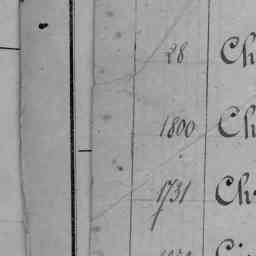 28 Ch
1800 Ch
1731 Ch